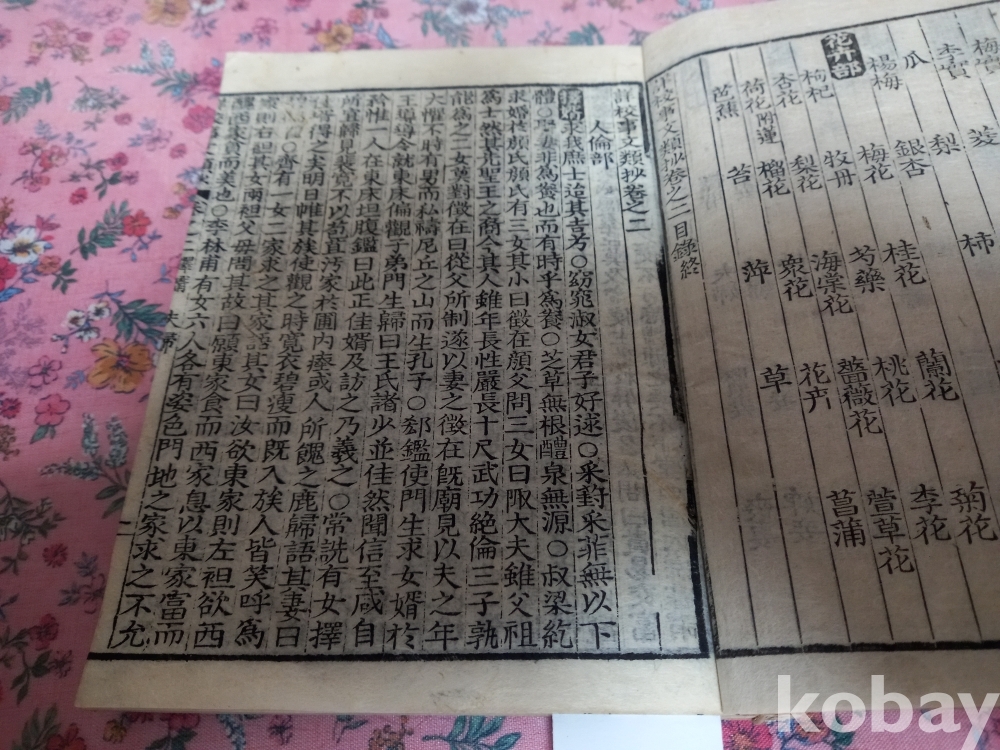 梅實 菱 柿 菊花
李實 梨 蘭花 李花
瓜 銀杏 桂花 桃花 萱草花
楊梅 梅花 芍藥 薔薇花 菖蒲
花卉部 牧丹 海棠花 花卉
枸杞 梨花 衆花 草
杏花 榴花 萍
荷花附蓮 苔
芭蕉
校事文類抄卷之二目錄終
詳校事文類抄卷之二
人倫部
求我庶士迨其吉兮○窈窕淑女君子好逑○采葑采菲無以下
體○娶妻非爲養也而有時乎爲養○芝草無根醴泉無源○叔梁紇
求婚於顔氏顔氏有三女其小曰徵在顔父問三女曰陬大夫雖父祖
爲士然其先聖王之裔今其人雖年長性嚴長十尺武功絶倫三子孰
能爲之二女莫對徵在曰從父所制遂以妻之徵在旣廟見以夫之年
大懼不時有男而私禱尼丘之山而生孔子○郄鑑使門生求女婿於
王導導令就東床徧觀子弟門生歸曰王氏諸少並佳然聞信至咸自
矜惟一人在東床坦腹鑑曰此正佳婿及訪之乃義之○常詵有女擇
所宜歸見裴寬不以苞苴汚家於圃內瘞或人所餽之鹿歸語其妻曰
常得之矣明日帷其族使觀之時寬衣碧瘦而旣入族人皆笑呼爲
○齊有一女二家求之其家語其女曰汝欲東家則左袒欲西
家則右袒其女兩袒父母問其故曰願東家食而西家息以東家富而
醜西家貧而美也○李林甫有女六人各有姿色門地之家求之不允